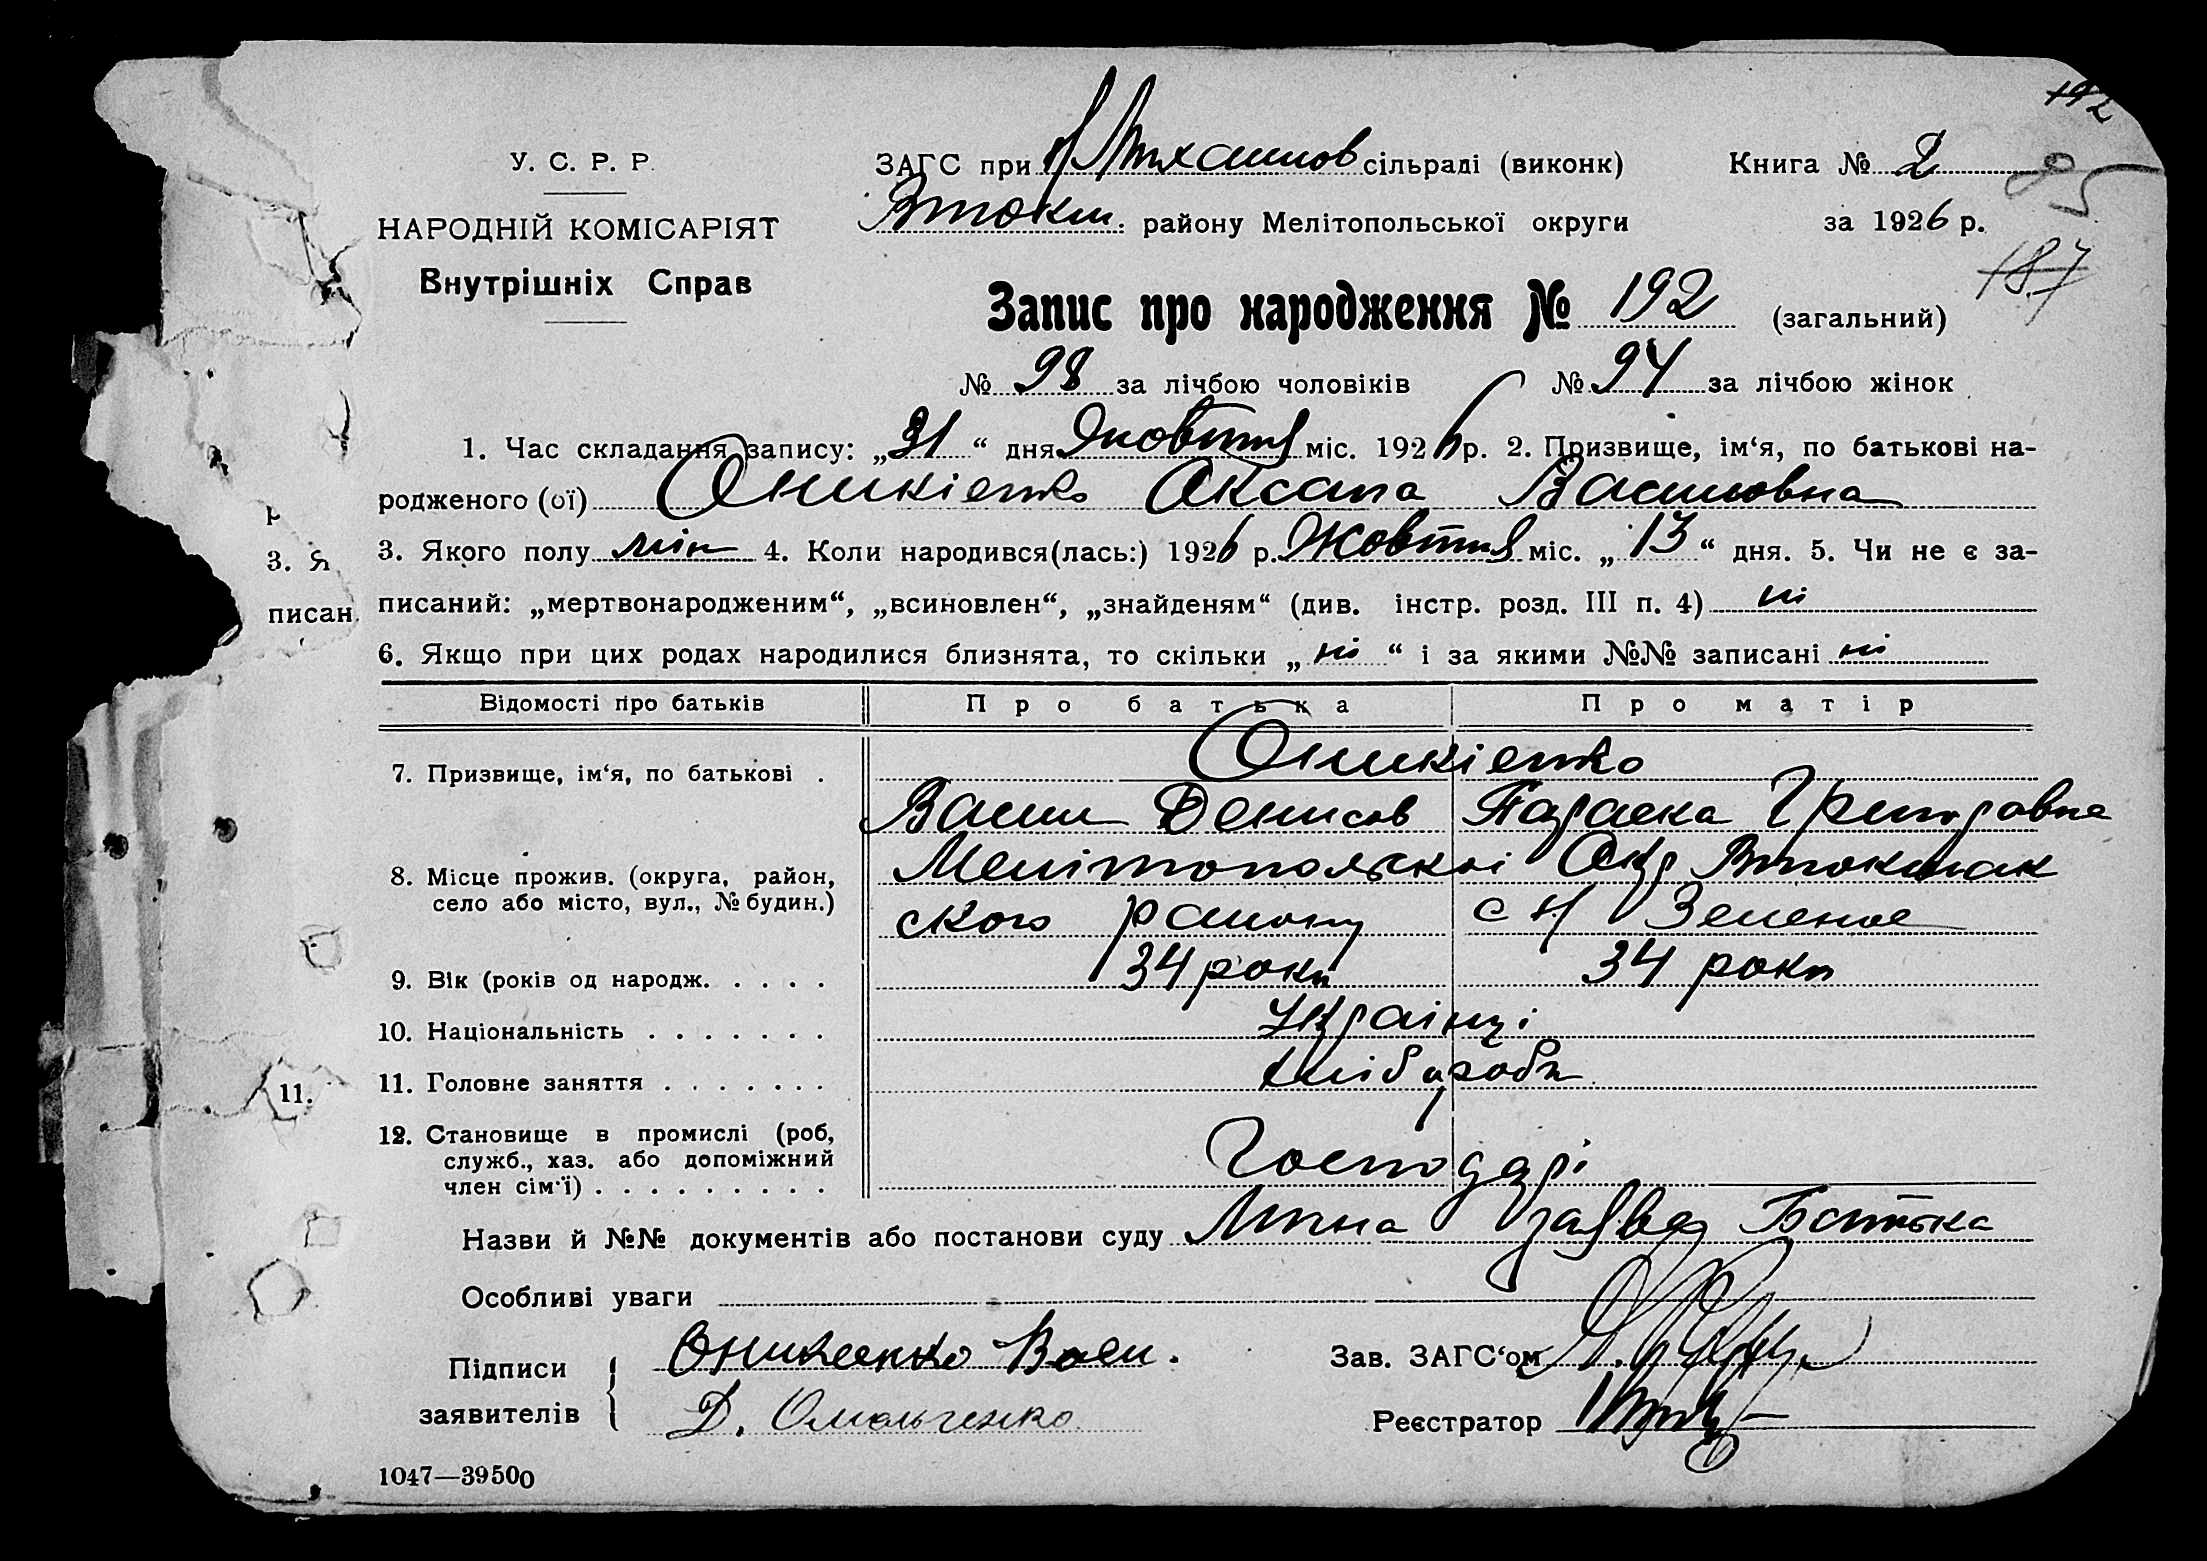 192
У. С. Р. Р.
ЗАГС при Михаилов сільраді (виконк)
Книга № 2
95
НАРОДНІЙ КОМІСАРІЯТ
Втокм. району Мелітопольської округи
за 1926 р.
187
Внутрішніх Справ
Запис про народження № 192 (загальний)
№ 98 за лічбою чоловіків № 94 за лічбою жінок
1. Час складання запису: „31“ дня Жовтня міс. 1926 р. 2. Призвище, ім‘я, по батькові на-
родженого (ої) Оникіенко Оксана Василовна
3. Якого полу жін 4. Коли народився(лась:) 1926 р. Жовтня міс. „13“ дня. 5. Чи не є за-
писаний: „мертвонародженим“, „всиновлен“, „знайденям“ (див. інстр. розд. III п. 4) ні
6. Якщо при цих родах народилися близнята, то скільки „ні“ і за якими №№ записані ні
3. Я
писан
11.
Відомості про батьків Про батька Про матір
7. Призвище, ім‘я, по батькові . Оникіенко
Васил Денисов Параска Григоровна
8. Місце прожив. (округа, район, Мелітопольскоі Окр Втокмак
село або місто, вул., № будин.) ского району с Н Зеленое
9. Вік (років од народж. . . . . 34 роки 34 роки
10. Національність . . . . . . . Украінці
11. Головне заняття . . . . . . . хліборобн
12. Становище в промислі (роб,
служб., хаз. або допоміжний Господарі
член сім‘ї) . . . . . . . . .
Назви й №№ документів або постанови суду Лична заява Батька
Особливі уваги
Підписи Оникеенко Васи.
Зав. ЗАГС‘ом
заявителів Д. Омельченко
Реєстратор
1047—39500